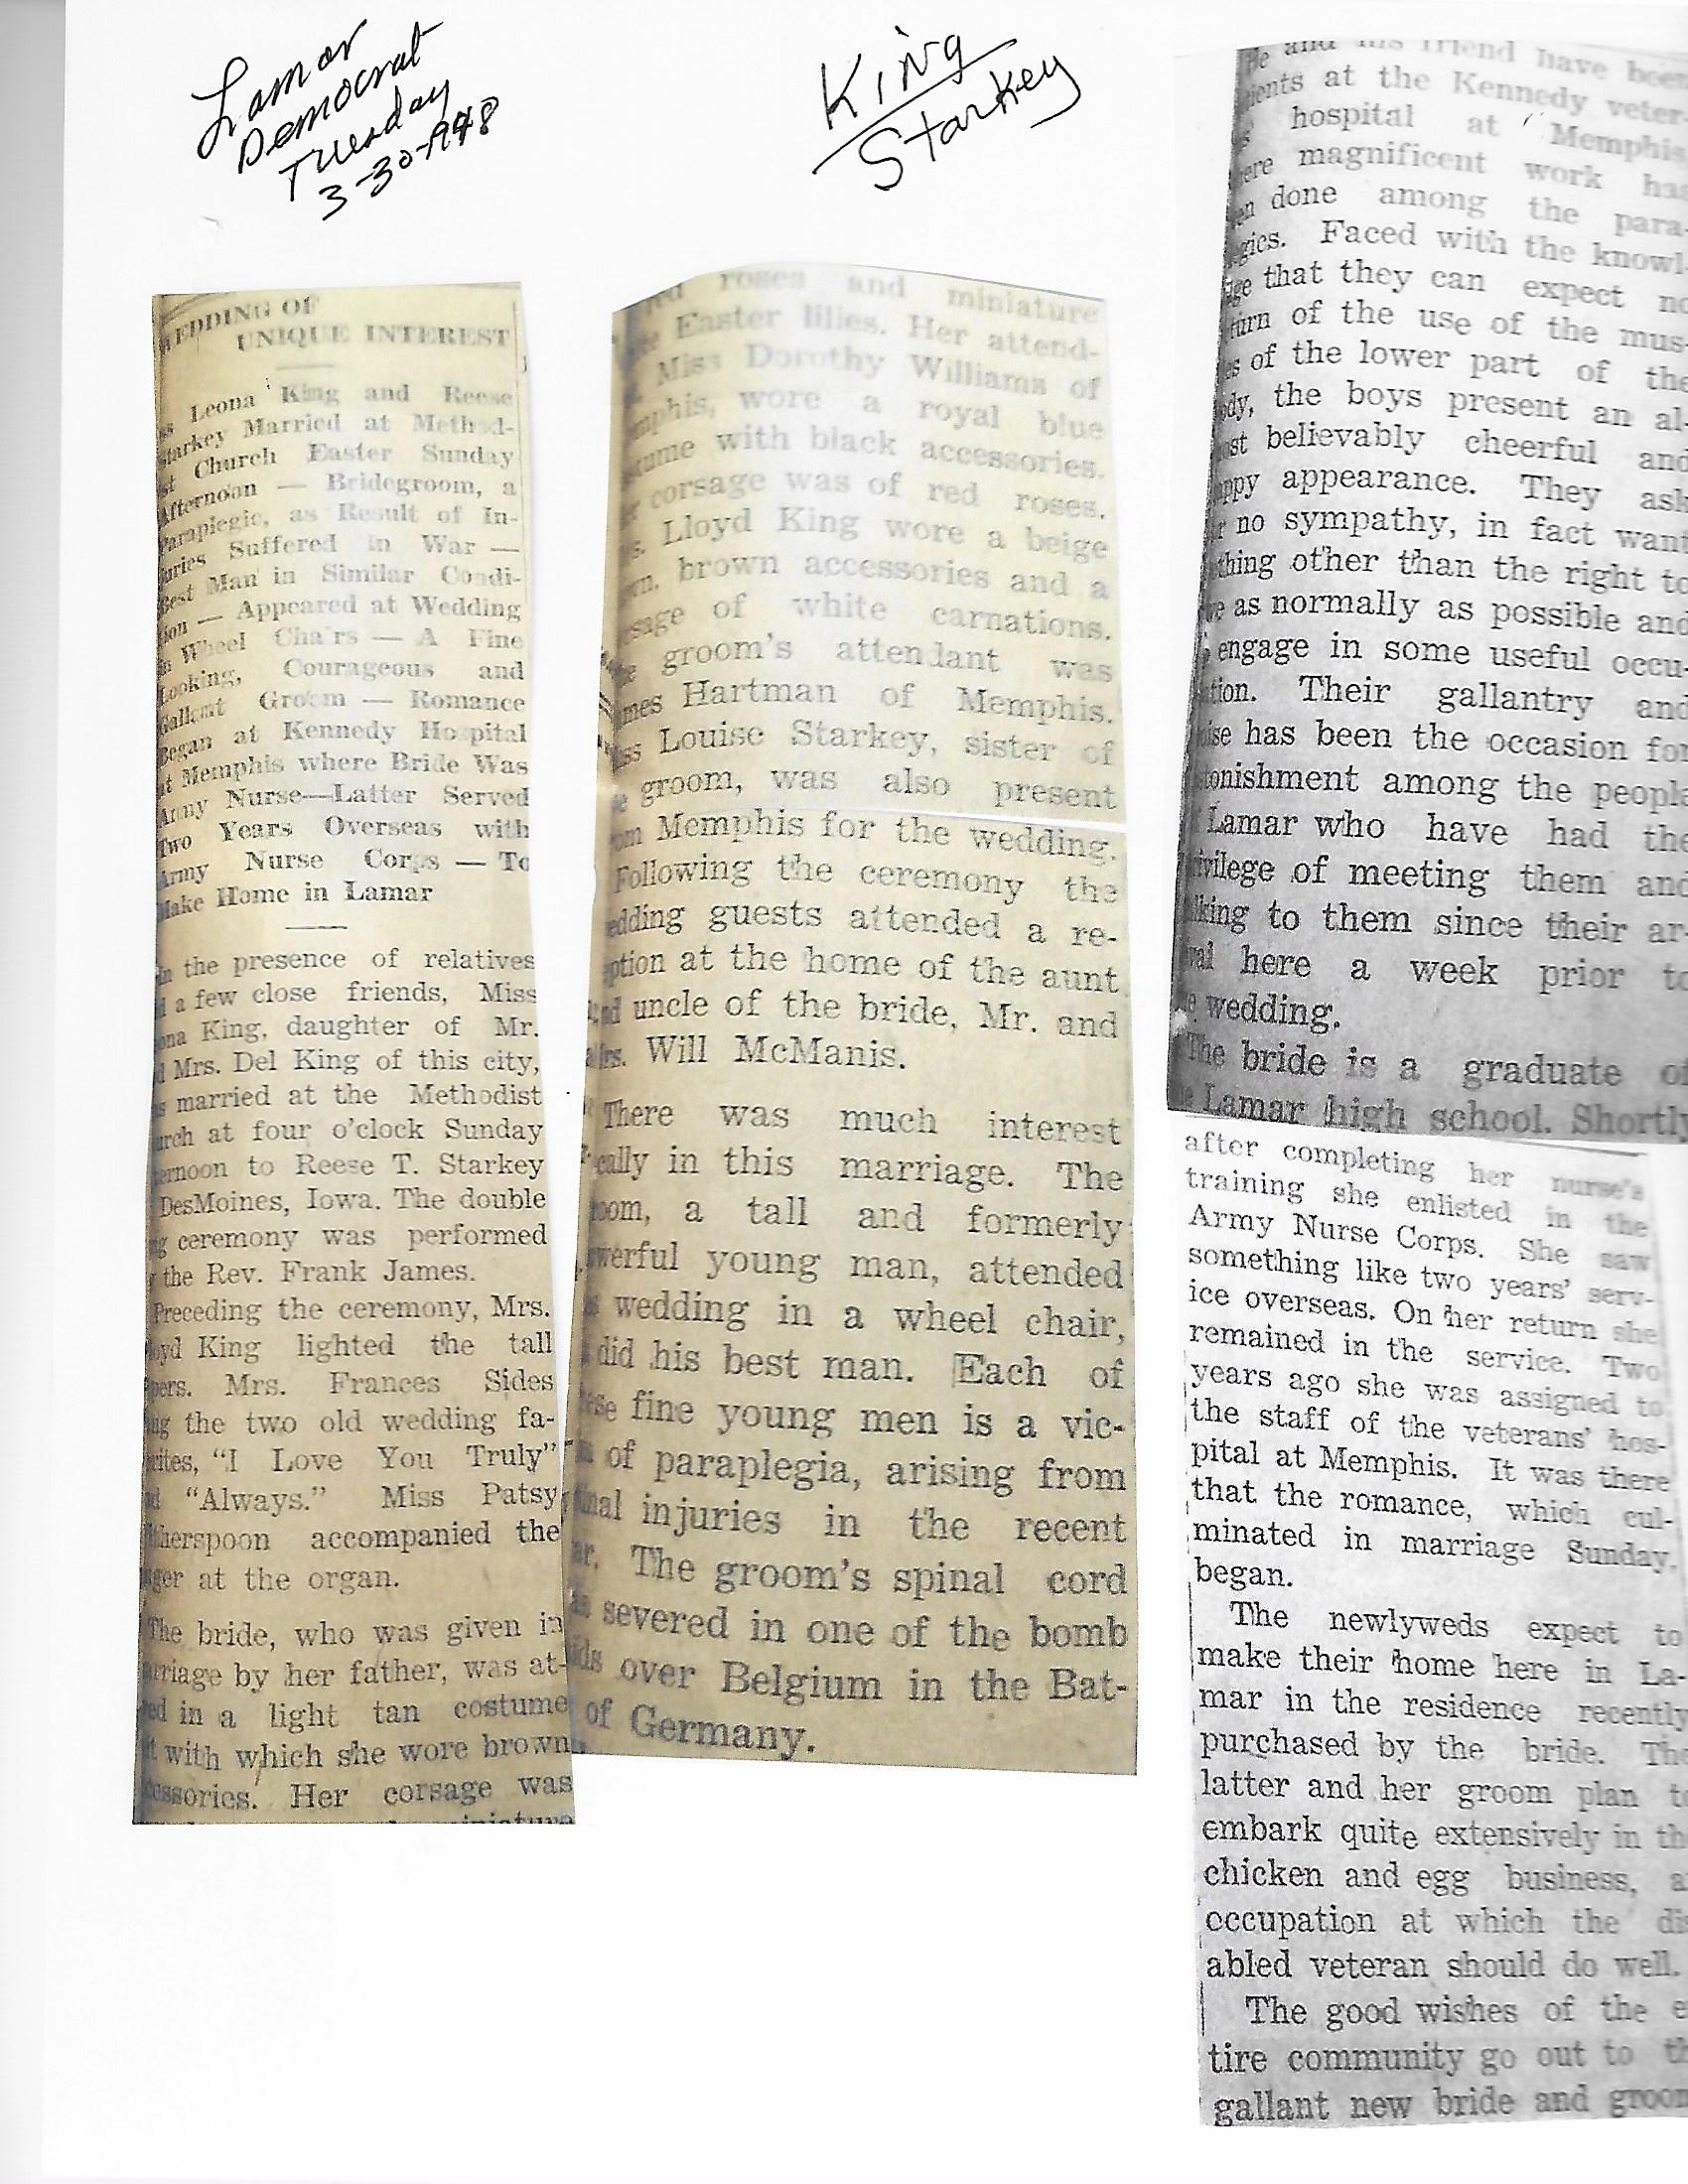 Lamar
Democrat
Tuesday
3-30-1948
King
Starkey
WEDDING OF
UNIQUE INTEREST
ss Leona King and Reese
Starkey Married at Method-
st Church Easter Sunday
Afternoon — Bridegroom, a
Paraplegic, as Result of In-
juries Suffered in War —
Best Man in Similar Condi-
ion — Appeared at Wedding
in Wheel Chairs — A Fine
Looking, Courageous and
Gallant Groom — Romance
Began at Kennedy Hospital
at Memphis where Bride Was
Army Nurse—Latter Served
Two Years Overseas with
Army Nurse Corps — To
Make Home in Lamar
In the presence of relatives
d a few close friends, Miss
ona King, daughter of Mr.
d Mrs. Del King of this city,
s married at the Methodist
urch at four o'clock Sunday
ernoon to Reese T. Starkey
DesMoines, Iowa. The double
g ceremony was performed
y the Rev. Frank James.
Preceding the ceremony, Mrs.
oyd King lighted the tall
pers. Mrs. Frances Sides
ng the two old wedding fa-
rites, "I Love You Truly"
d "Always." Miss Patsy
therspoon accompanied the
nger at the organ.
The bride, who was given in
rriage by her father, was at-
ed in a light tan costume
it with which she wore brown
cessories. Her corsage was
miniature
red roses and miniature
te Easter lilies. Her attend-
t, Miss Dorothy Williams of
mphis, wore a royal blue
stume with black accessories.
er corsage was of red roses.
rs. Lloyd King wore a beige
wn, brown accessories and a
rsage of white carnations.
he groom's attendant was
ames Hartman of Memphis.
iss Louise Starkey, sister of
e groom, was also present
om Memphis for the wedding.
Following the ceremony the
edding guests attended a re-
ption at the home of the aunt
nd uncle of the bride, Mr. and
Mrs. Will McManis.
There was much interest
cally in this marriage. The
oom, a tall and formerly
werful young man, attended
s wedding in a wheel chair,
s did his best man. Each of
ese fine young men is a vic-
m of paraplegia, arising from
inal injuries in the recent
ar. The groom's spinal cord
as severed in one of the bomb
ids over Belgium in the Bat-
of Germany.
He and his friend have been
tients at the Kennedy veter-
s hospital at Memphis
here magnificent work has
en done among the para-
egics. Faced with the knowl-
dge that they can expect no
turn of the use of the mus-
es of the lower part of the
ody, the boys present an al-
ost believably cheerful and
appy appearance. They ask
r no sympathy, in fact want
thing other than the right to
ve as normally as possible and
engage in some useful occu-
tion. Their gallantry and
ise has been the occasion for
tonishment among the people
Lamar who have had the
rivilege of meeting them and
lking to them since their ar-
val here a week prior to
e wedding.
The bride is a graduate of
e Lamar high school. Shortly
after completing her nurse's
training she enlisted in the
Army Nurse Corps. She saw
something like two years' serv-
ice overseas. On her return she
remained in the service. Two
years ago she was assigned to
the staff of the veterans' hos-
pital at Memphis. It was there
that the romance, which cul-
minated in marriage Sunday,
began.
The newlyweds expect to
make their home here in La-
mar in the residence recently
purchased by the bride. The
latter and her groom plan to
embark quite extensively in th
chicken and egg business, a
occupation at which the dis
abled veteran should do well.
The good wishes of the e
tire community go out to th
gallant new bride and groom